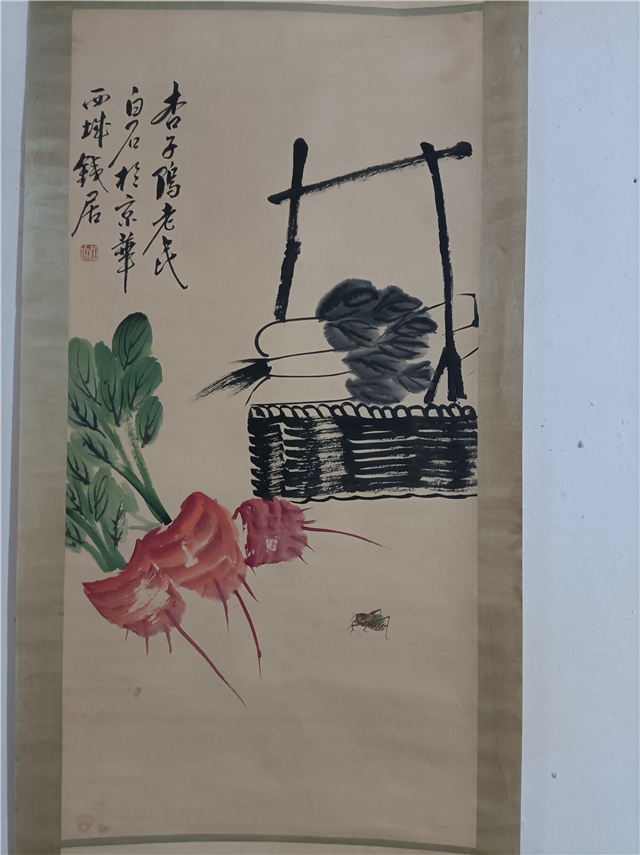 杏子隖老民
白石於京華
西城錢居